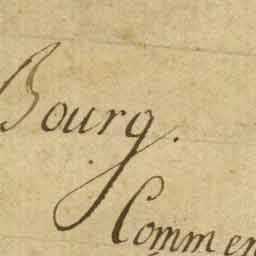 Bourg.
Commen